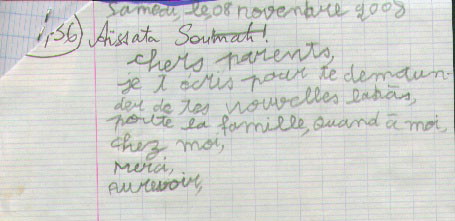 Samedi, le 08 novembre 2008
1,56) Aïssata Soumah!
chers parents,
je t écris pour te deman-
der de tes nouvelles labàs,
poute la famille, quand à moi,
chez moi,
merci,
aurevoir,